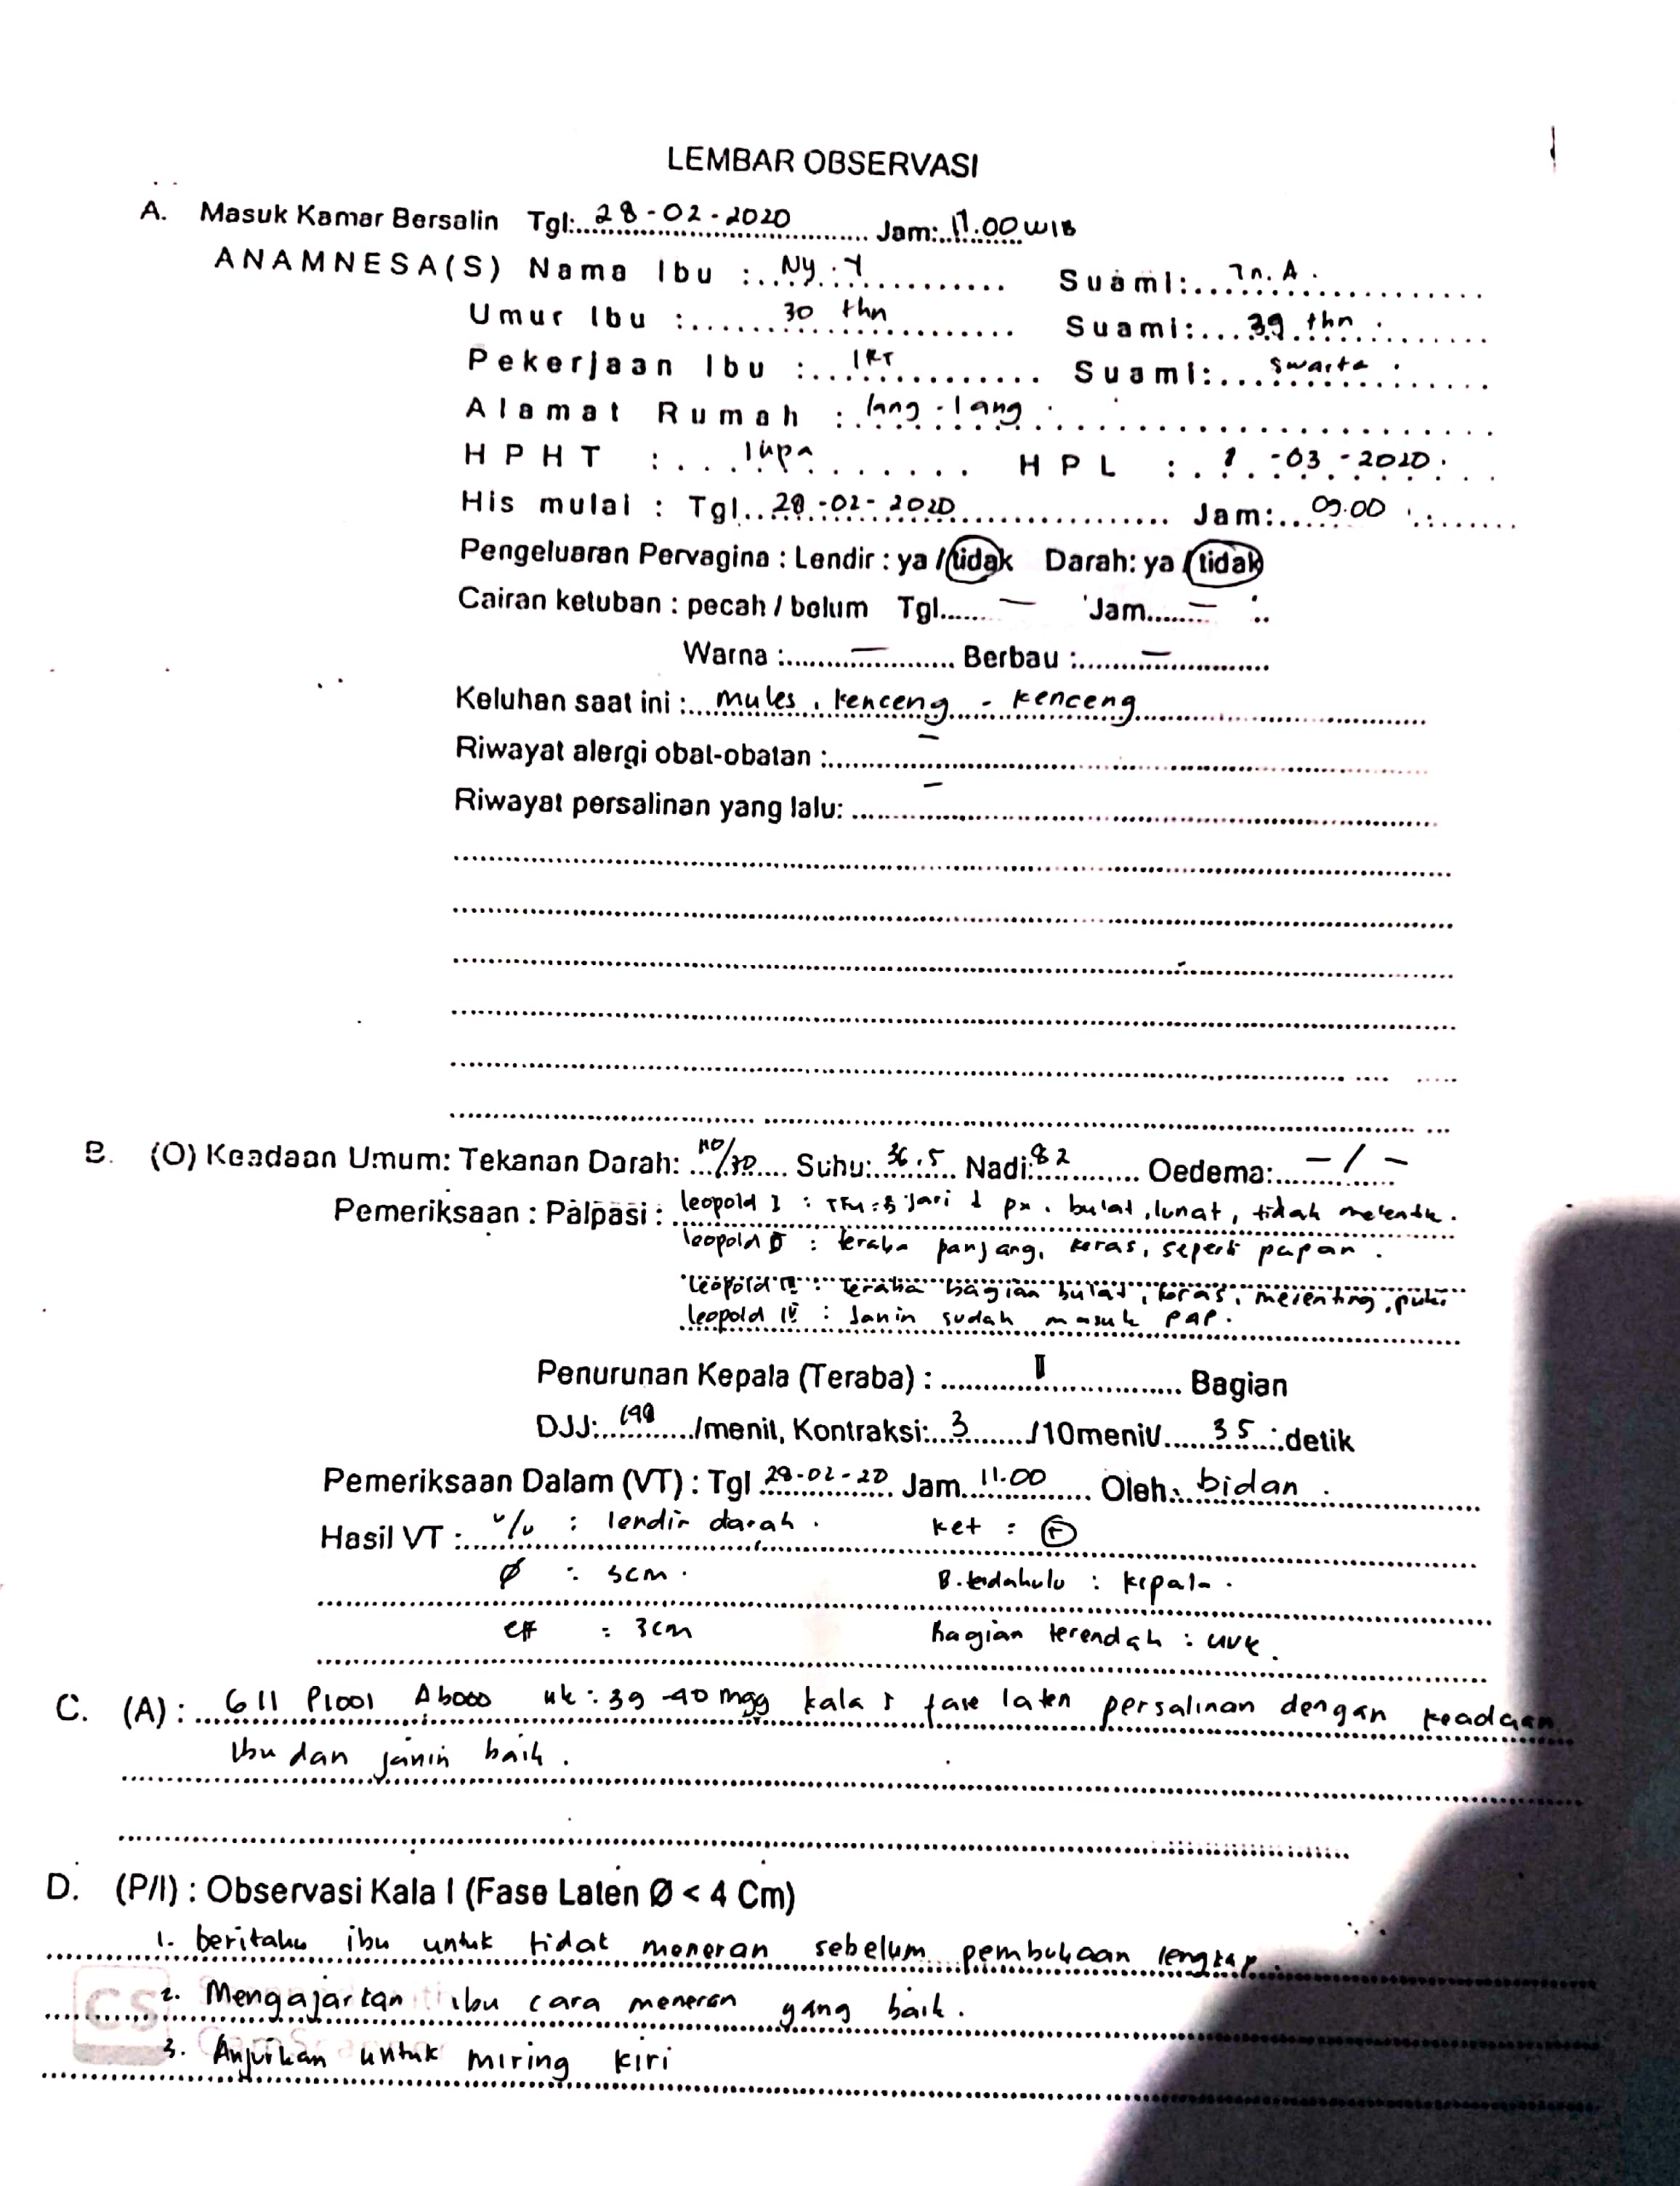 LEMBAR OBSERVASI
A. Masuk Kamar Bersalin Tgl: 28-02-2020 Jam: 11.00 WIB
ANAMNESA(S) Nama Ibu : Ny. Y Suami: Tn. A.
Umur Ibu : 30 thn Suami: 39 thn.
Pekerjaan Ibu : IRT Suami: Swasta.
Alamat Rumah : lang-lang.
HPHT : lupa HPL : 1-03-2020.
His mulai : Tgl. 28-02-2020 Jam: 09.00
Pengeluaran Pervagina : Lendir : ya / tidak Darah: ya / tidak
Cairan ketuban : pecah / belum Tgl. - Jam. -
Warna : - Berbau : -
Keluhan saat ini : mules, kenceng - kenceng
Riwayat alergi obat-obatan : -
Riwayat persalinan yang lalu: -
B. (O) Keadaan Umum: Tekanan Darah: 110/70 Suhu: 36.5 Nadi: 82 Oedema: -/-
Pemeriksaan : Palpasi : leopold I : TFU = 3 jari ↓ px. bulat, lunak, tidak
leopold II : teraba panjang, keras, seperti papan.
leopold III : teraba bagian bulat, keras, melenting,
leopold IV : Janin sudah masuk PAP.
Penurunan Kepala (Teraba) : II Bagian
DJJ: /menit, Kontraksi: 3 /10menit/ 35 detik
Pemeriksaan Dalam (VT) : Tgl 28-02-20 Jam. 11.00 Oleh: bidan.
Hasil VT : v/v : lendir darah. ket :
Ø : 3cm. B. terdahulu : kepala.
eff : 3cm bagian terendah : UUK.
C. (A) : GII P1001 Ab000 uk : 39-40 mgg kala I fase laten persalinan dengan keadaan
Ibu dan janin baik.
D. (P/I) : Observasi Kala I (Fase Laten Ø < 4 Cm)
1. beritahu ibu untuk tidak meneran sebelum pembukaan lengkap.
2. Mengajarkan ibu cara meneran yang baik.
3. Anjurkan untuk miring kiri
CS